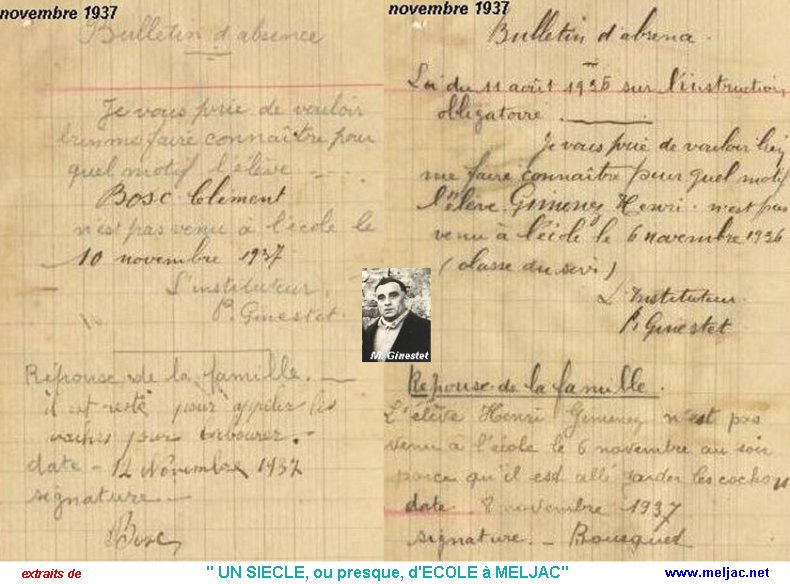 novembre 1937
Bulletin d'absence
Je vous prie de vouloir
bien me faire connaître pour
quel motif l'élève
Bosc Clément
n'est pas venu à l'école le
10 novembre 1937
L'instituteur.
P. Ginestet.
Réponse de la famille.
il est resté pour appeler les
vaches pour labourer.
date - 12 Novembre 1937
signature
Bosc
novembre 1937
Bulletin d'absence.
Loi du 11 août 1936 sur l'instruction
obligatoire.
Je vous prie de vouloir bien
me faire connaître pour quel motif
l'élève Gimenez Henri n'est pas
venu à l'école le 6 novembre 1936
(classe du soir)
L'Instituteur.
P. Ginestet
Réponse de la famille.
L'élève Henri Gimenez n'est pas
venu à l'école le 6 novembre au soir
parce qu'il est allé garder les cochons
date 8 novembre 1937
signature. - Bousquet
M. Ginestet
extraits de
" UN SIECLE, ou presque, d'ECOLE à MELJAC"
www.meljac.net